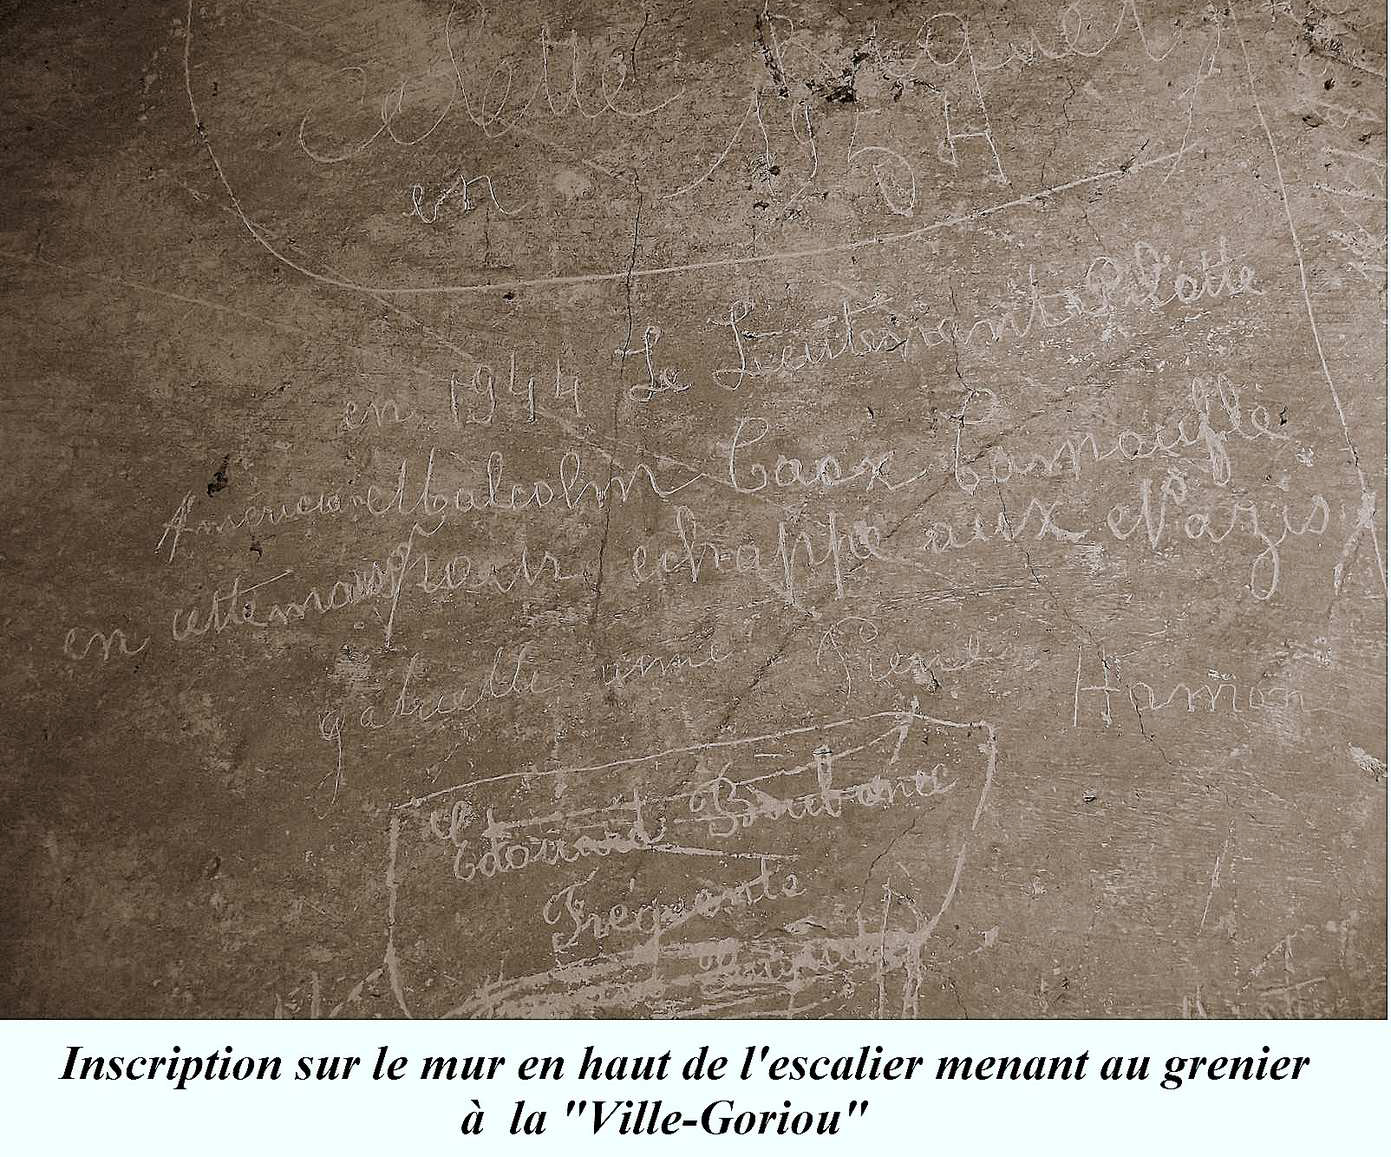 Colette
en 1954
en 1944 Le Lieutenant Pilotte
Américain Malcolm Camouflé
en cette pour echappé aux Nazis
gabrielle aime Pierre Hamon
Edouard
Fréquente
Inscription sur le mur en haut de l'escalier menant au grenier
à la "Ville-Goriou"